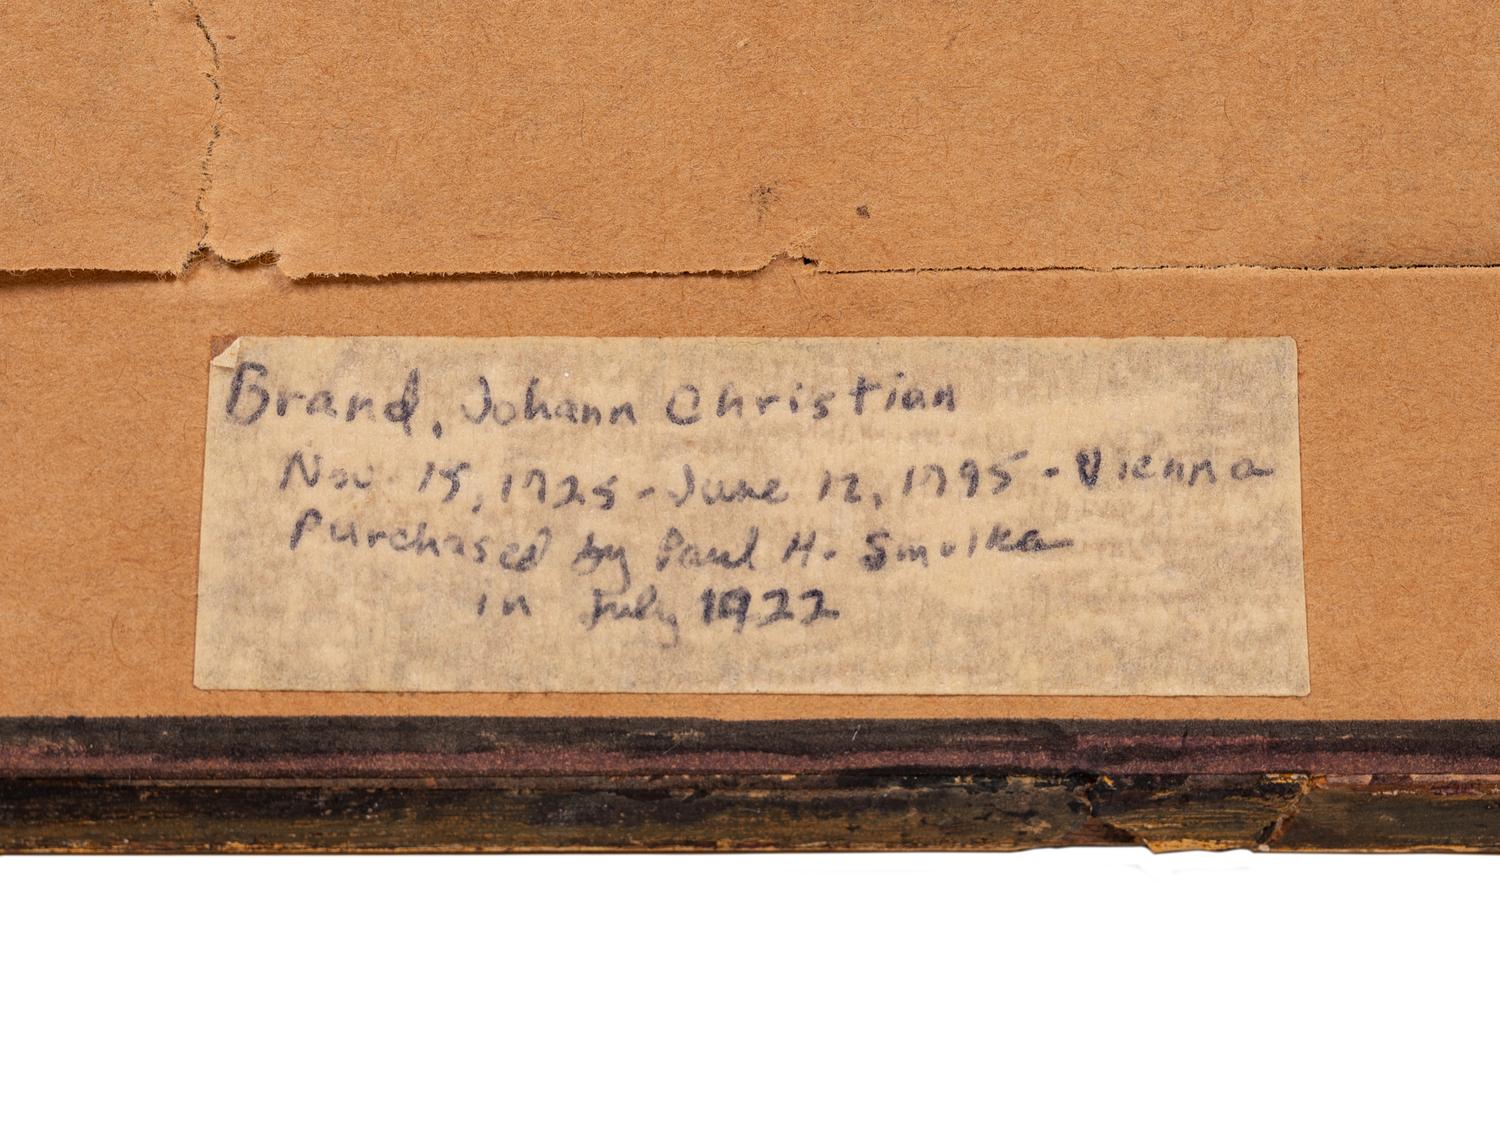 Brand, Johann Christian
Nov. 15, 1725 - June 12, 1795 - Vienna
Purchased by Paul H. Smolka
in July 1922